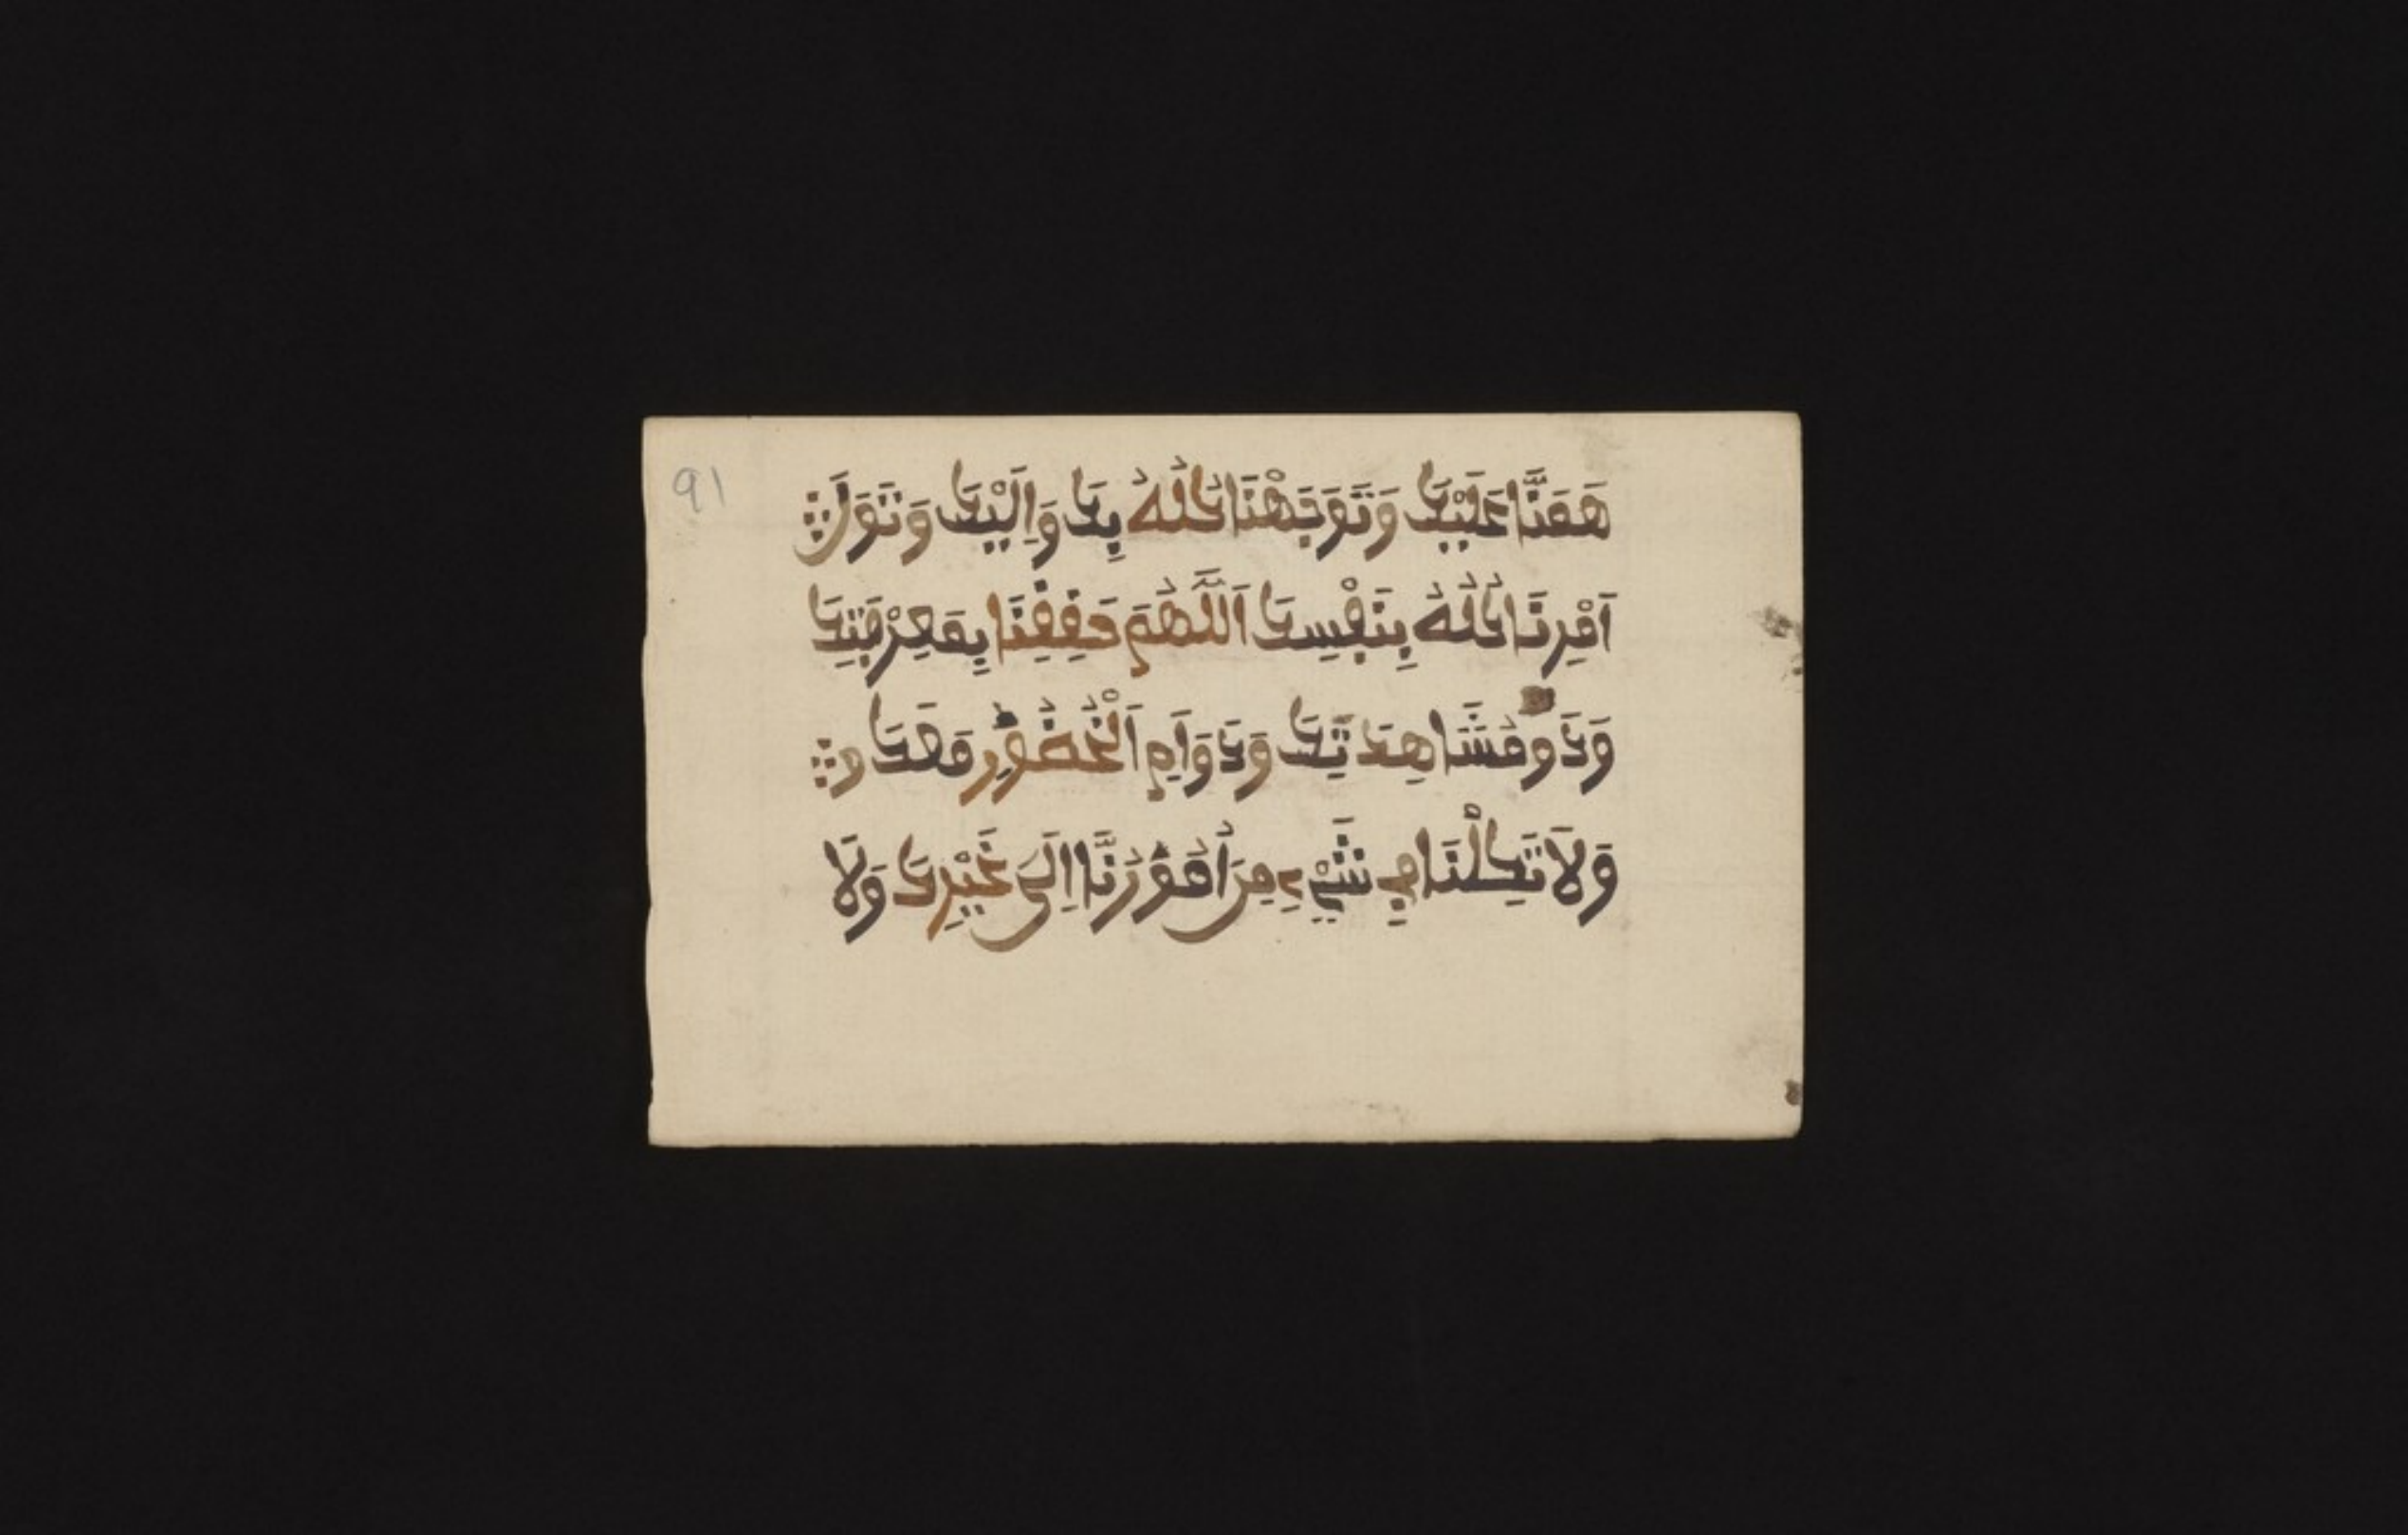 91
هَمَنَّا عَلَيْكَ وَتَوَجَّهْنَا كُلُّهُ بِكَ وَاِلَيْكَ وَتَوَلَّ
اَمْرِنَا كُلُّهُ بِنَفْسِكَ اَللَّهُمَّ حَقِّقْنَا بِمَعْرِفَتِكَ
وَدَومُشَاهِدَتِكَ وَدَوَامِ اَلْحُضُورِ مَعَكَ
وَلَا تَكِلْنَا فِي شَيْءٍ مِنَ اُمُورِنَا اِلَى غَيْرِكَ وَلَا